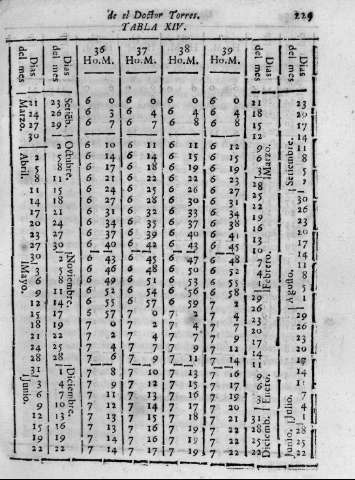 de el Doctor Torres. 229
TABLA XIV.
Dias del mes Dias del mes 36 Ho.M. 37 Ho.M. 38 Ho.M. 39 Ho.M. Dias del mes Dias del mes
Marzo. 21 23 6 0 6 0 6 0 6 0 21 23
24 26 6 3 6 4 6 4 6 4 18 20
27 29 6 7 6 7 6 8 6 8 15 17
30 Octubre. 2 6 10 6 11 6 11 6 12 12 14
Abril. 2 5 6 14 6 14 6 15 6 16 9 Marzo. 11 Setiembre.
5 8 6 17 6 18 6 19 6 19 6 8
8 11 6 21 6 22 6 22 6 23 3 5
11 15 6 24 6 25 6 26 6 27 28 2
14 18 6 27 6 28 6 29 6 30 25 30
17 21 6 31 6 32 6 33 6 34 22 26
20 24 6 34 6 35 6 36 6 38 19 23
23 27 6 37 6 39 6 40 6 41 16 20
27 30 6 40 6 42 6 43 6 44 13 17
30 Noviembre. 2 6 43 6 45 6 47 6 48 10 Febrero. 14
Mayo. 3 5 6 46 6 48 6 50 6 52 7 11 Agosto.
6 8 6 49 6 51 6 53 6 55 4 8
9 11 6 52 6 54 6 56 6 58 5
12 14 6 55 6 57 6 59 7 2 29 1
15 6 57 7 0 7 2 7 4 26 29
18 19 7 0 7 2 7 4 7 7 23 26
21 22 7 2 7 4 7 7 7 9 20 23
24 25 7 4 7 7 7 9 7 12 17 20
28 28 7 6 7 9 7 11 7 14 14 17
31 Diciembre. 1 7 8 7 10 7 13 7 16 11 Enero. 14
Junio. 3 4 7 9 7 12 7 15 7 17 11 Julio.
6 7 7 11 7 13 7 16 7 19 7
9 10 7 12 7 14 7 17 7 20 4
12 13 7 13 7 15 7 18 7 21 31 Diciemb. 1
15 16 7 13 7 16 7 19 7 22 28 28 Junio.
19 19 7 14 7 16 7 19 7 22 25 25
22 22 7 14 7 17 7 19 7 22 22 22